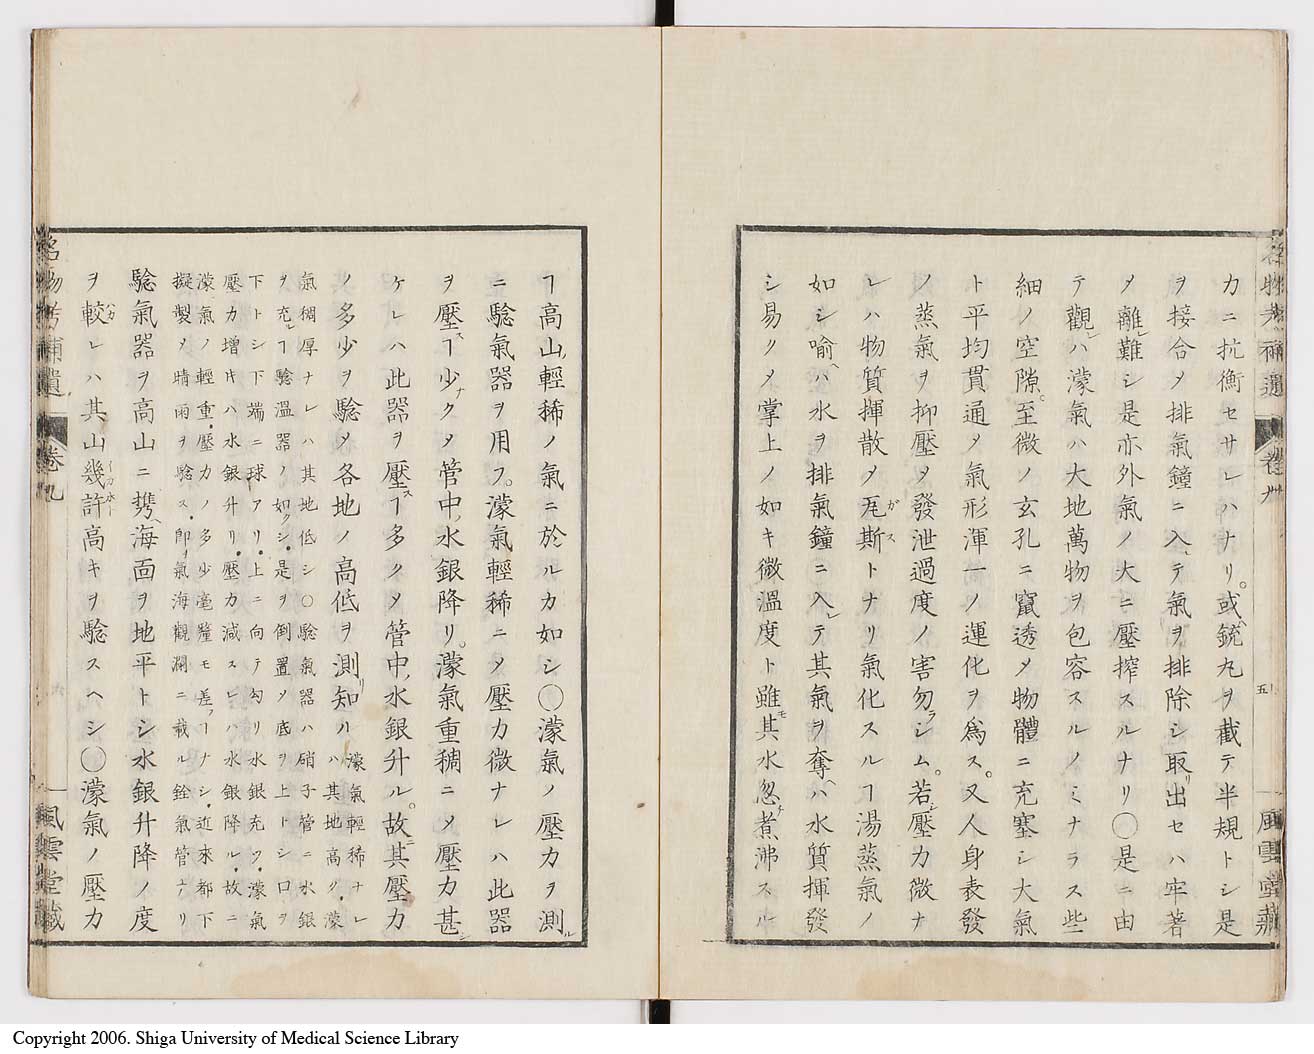 名物考補遺 卷九 五 風雲堂藏
カニ抗衡セサレハナリ。或ハ銃丸ヲ截テ半規トシ是
ヲ接合メ排氣鐘ニ入レテ氣ヲ排除シ取リ出セハ牢著
メ離レ難シ是亦外氣ノ大ニ壓搾スルナリ○是ニ由
テ觀レハ濛氣ハ大地萬物ヲ包容スルノミナラス些
細ノ空隙。至微ノ玄孔ニ竄透メ物體ニ充塞シ大氣
ト平均貫通メ氣形渾一ノ運化ヲ爲ス。又人身表發
ノ蒸氣ヲ抑壓メ發泄過度ノ害勿ラシム。若シ壓力微ナ
レハ物質揮散メ瓦斯トナリ氣化スルヿ湯蒸氣ノ
如シ喩ヘハ水ヲ排氣鐘ニ入レテ其氣ヲ奪ヘハ水質揮發
シ易クメ掌上ノ如キ微溫度ト雖モ其水忽チ煮沸スル
ヿ高山ノ輕稀ノ氣ニ於ルカ如シ○濛氣ノ壓力ヲ測ル
ニ驗氣器ヲ用フ。濛氣輕稀ニメ壓力微ナレハ此器
ヲ壓スヿ少ナクメ管中ノ水銀降リ。濛氣重稠ニメ壓力甚シ
ケレハ此器ヲ壓スヿ多クメ管中ノ水銀升ル。故ニ其壓力
ノ多少ヲ驗メ各地ノ高低ヲ測リ知ル
濛氣輕稀ナレ
ハ其地高ク、濛
氣稠厚ナレハ其地低シ○驗氣器ハ硝子管ニ水銀
ヲ充レヿ驗溫器ノ如クシ、是ヲ倒置メ底ヲ上トシ口ヲ
下トシ下端ニ球アリ、上ニ向テ勾リ水銀充ツ、濛氣
壓力增キハ水銀升リ、壓力減スレハ水銀降ル、故ニ
濛氣ノ輕重、壓力ノ多少毫釐モ差フヿナシ、近來都下
擬製メ晴雨ヲ驗ス、卽チ氣海觀瀾ニ載ル銓氣管ナリ
驗氣器ヲ高山ニ携ヘ海面ヲ地平トシ水銀升降ノ度
ヲ較レハ其山幾許高キヲ驗スヘシ○濛氣ノ壓力
名物考補遺 卷九 六 風雲堂藏
Copyright 2006. Shiga University of Medical Science Library